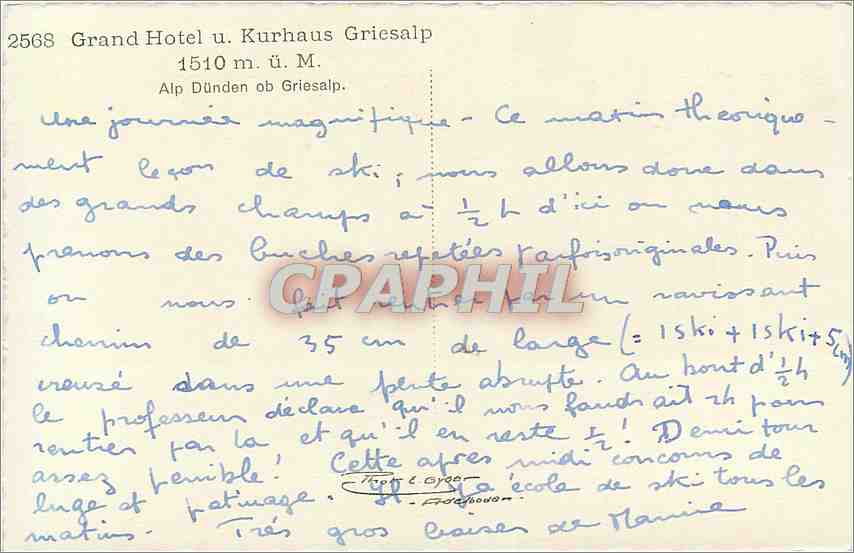 2568 Grand Hotel u. Kurhaus Griesalp
1510 m. ü. M.
Alp Dünden ob Griesalp.
Une journée magnifique - Ce matin théorique -
ment leçon de ski, nous allons donc dans
des grands champs à 1/2 h d'ici ou nous
prenons des buches repetées parfois originales. Puis
on nous fait rentrer par un ravissant
chemin de 35 cm de large (= 1 ski + 1 ski + 5 cm)
creusé dans une pente abrupte. Au bout d'1/2 h
le professeur déclare qu'il nous faudrait 2h pour
rentrer par la et qu'il en reste 1/2 ! Demi tour
assez penible ! Cette apres midi concours de
luge et patinage. Il y a école de ski tous les
matins. Très gros baisers de
Phot. E. Gyger
- Adelboden -
CPAPHIL